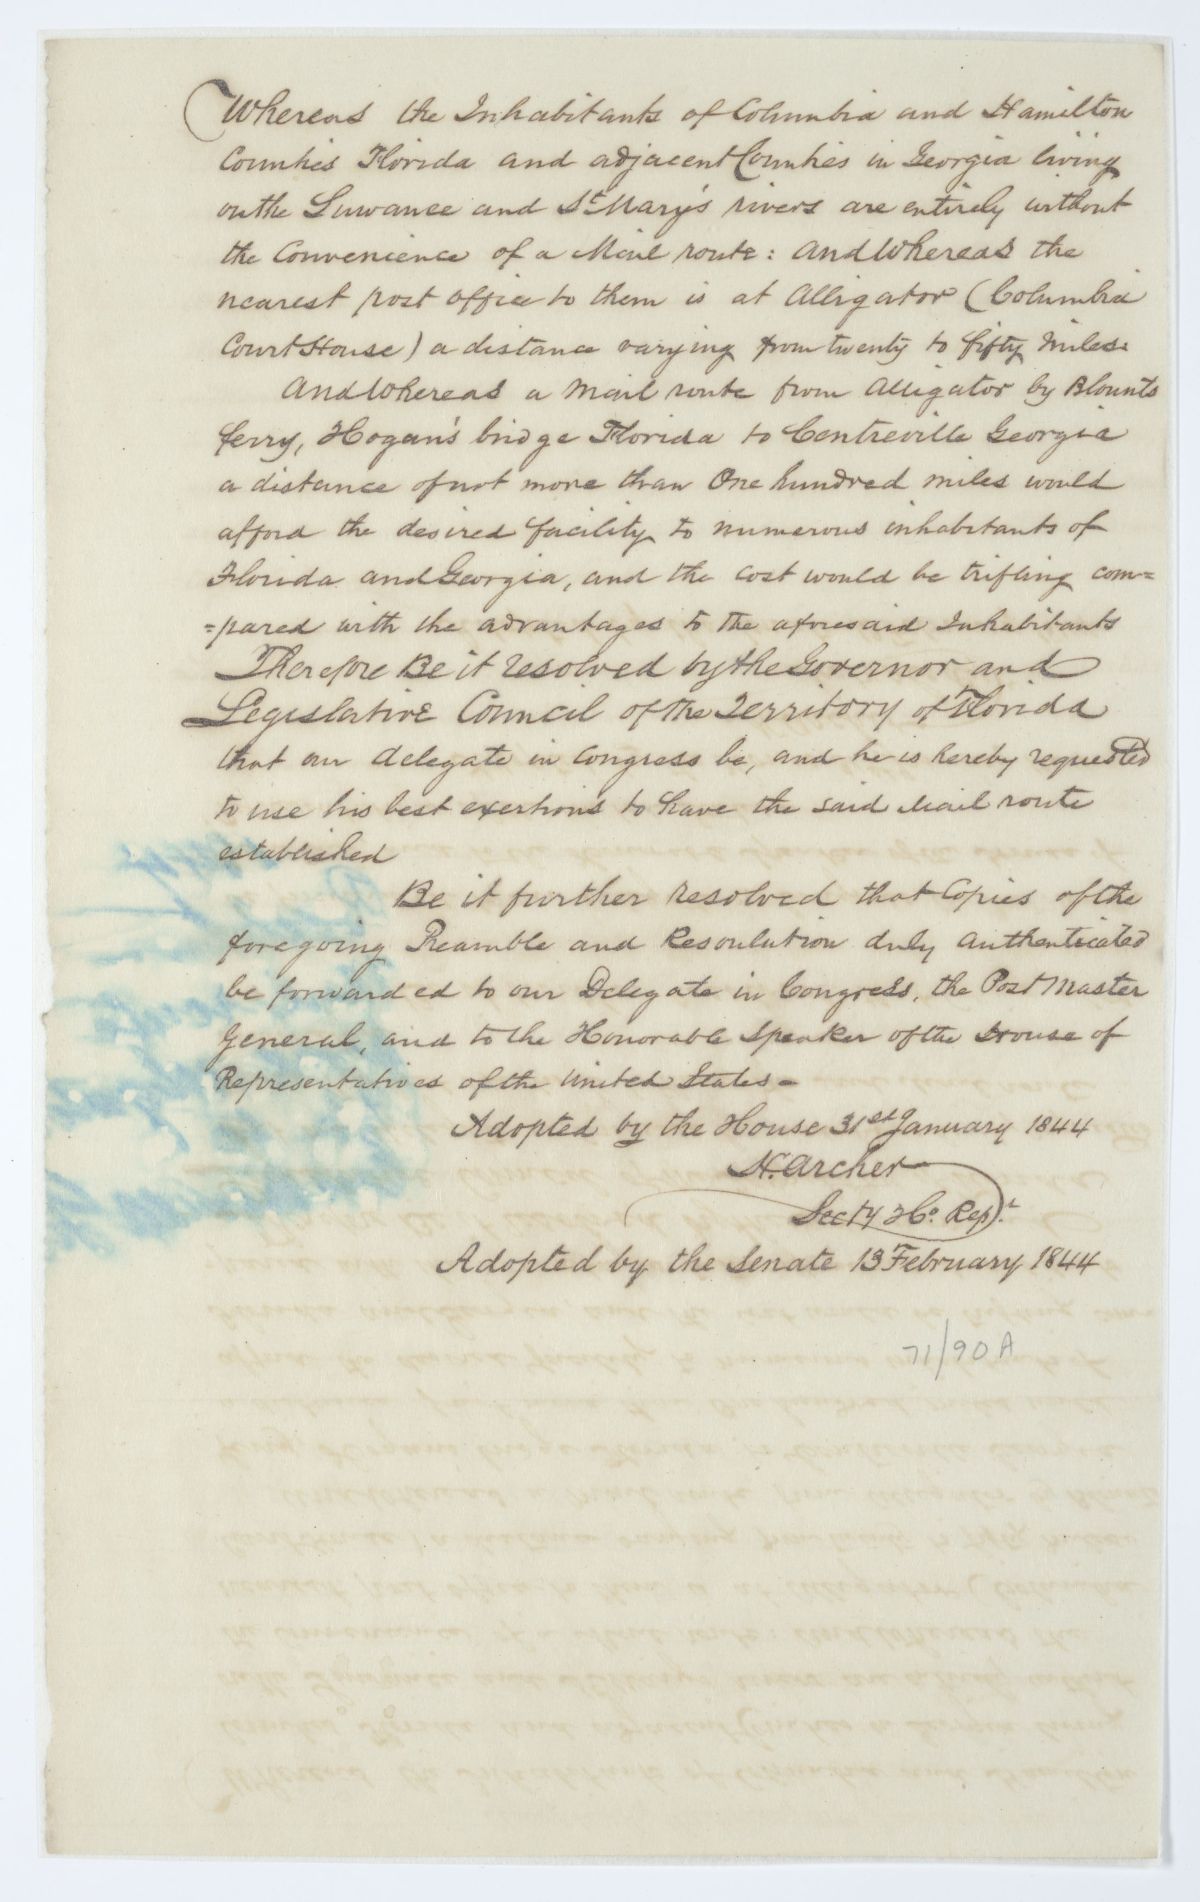 Whereas the Inhabitants of Columbia and Hamilton
Counties Florida and adjacent Counties in Georgia living
on the Suwanee and St. Mary's rivers are entirely without
the Convenience of a Mail route: and Whereas the
nearest post office to them is at Alligator (Columbia
Court House) a distance varying from twenty to fifty miles.
And Whereas a Mail route from Alligator by Blounts
ferry, Hogan's bridge Florida to Centreville Georgia
a distance of not more than One hundred miles would
afford the desired facility to numerous inhabitants of
Florida and Georgia, and the cost would be trifling com=
=pared with the advantages to the aforesaid Inhabitants
Therefore Be it resolved by the Governor and
Legislative Council of the Territory of Florida
that our delegate in Congress be, and he is hereby requested
to use his best exertions to have the said Mail route
established
Be it further resolved that Copies of the
foregoing Preamble and Resoulution duly authenticated
be forwarded to our Delegate in Congress, the Post Master
General, and to the Honorable Speaker of the House of
Representatives of the United States -
Adopted by the House 31st January 1844
H. Archer
Secty Ho. Rept.
Adopted by the Senate 13 February 1844
71/90A